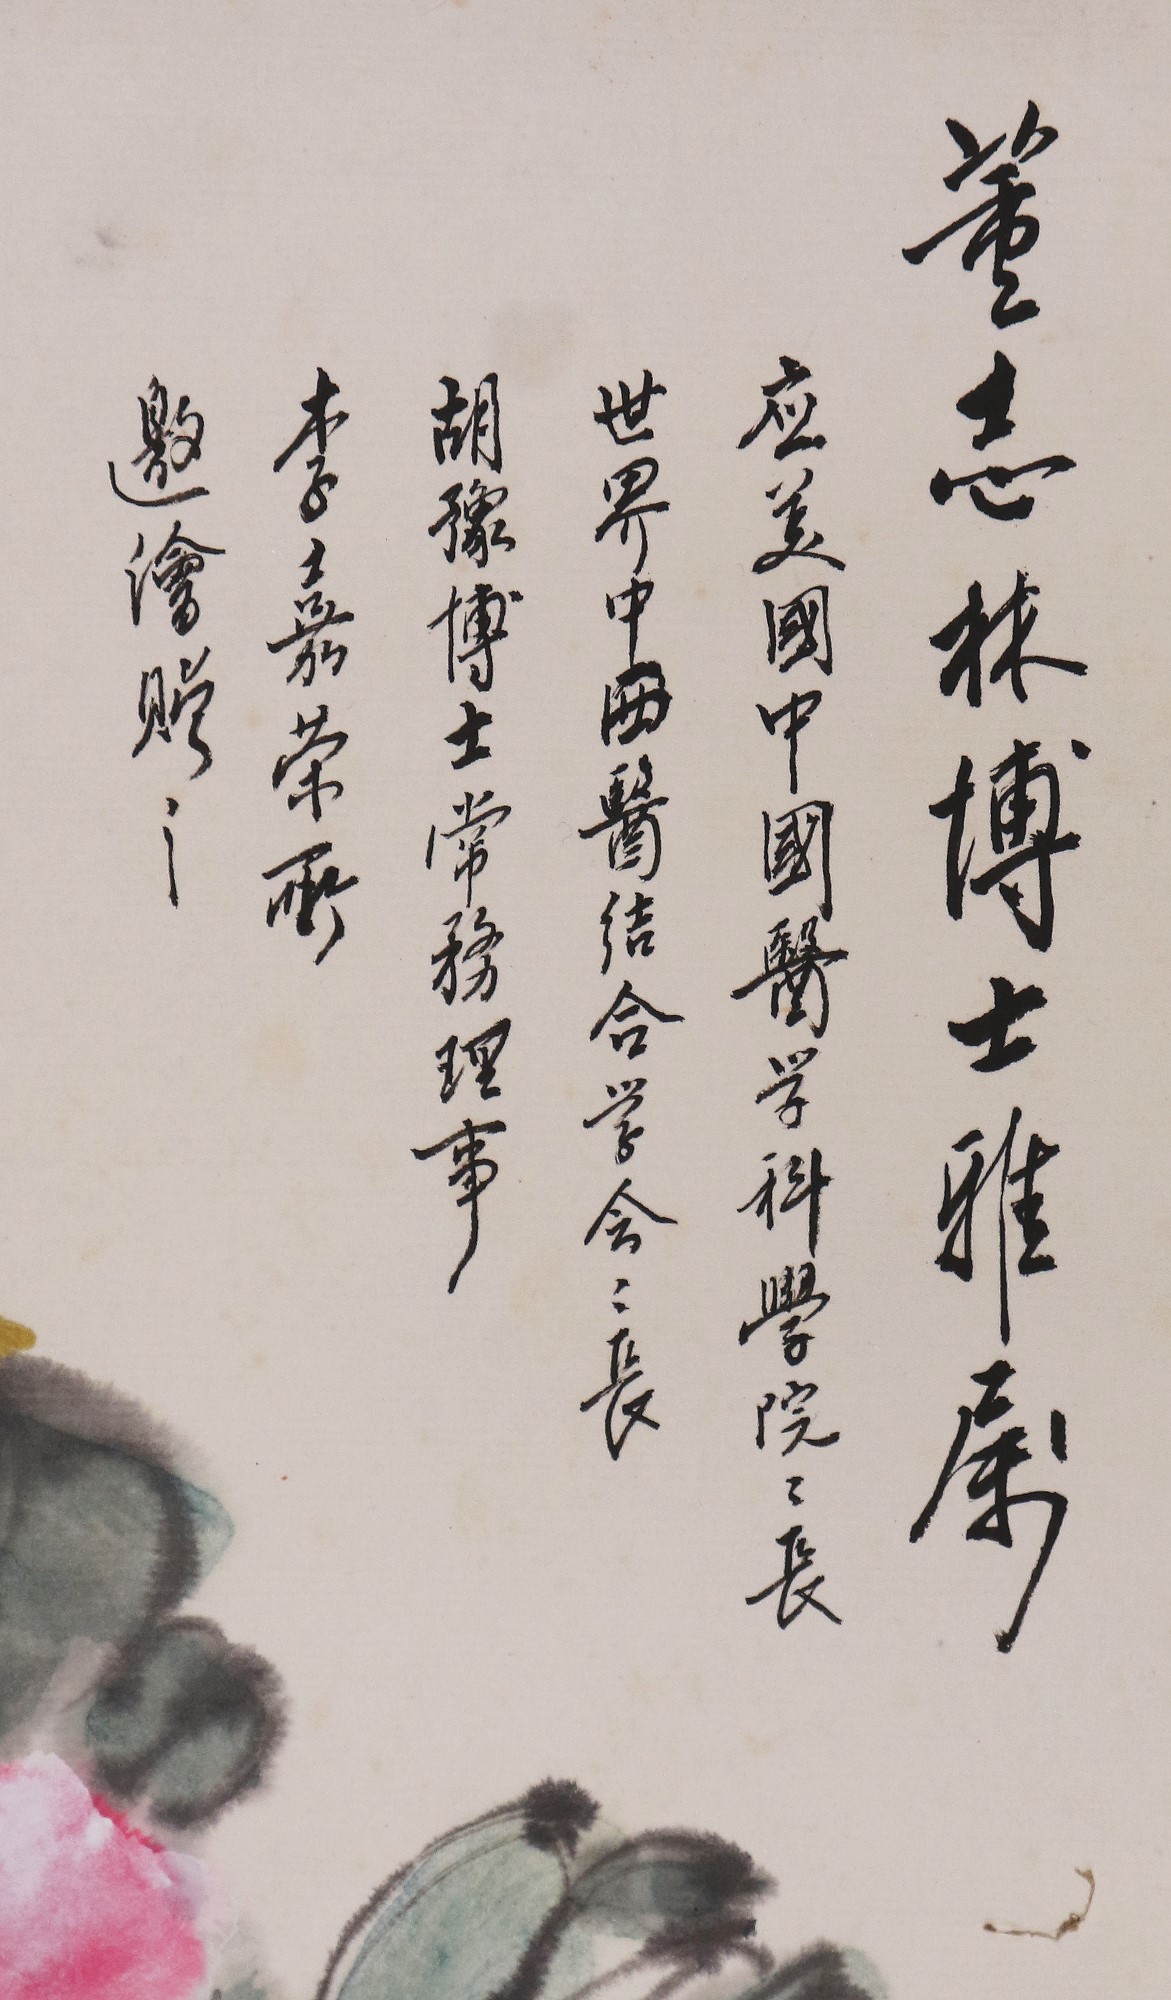 董志林博士雅属
应美國中國醫学科學院〻長
世界中西醫结合学会〻長
胡豫博士常務理事
李嘉荣所
邀繪贈之